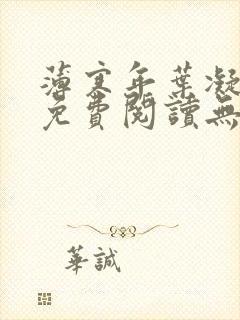 薄寒年葉凝
免費閱讀無
華誠